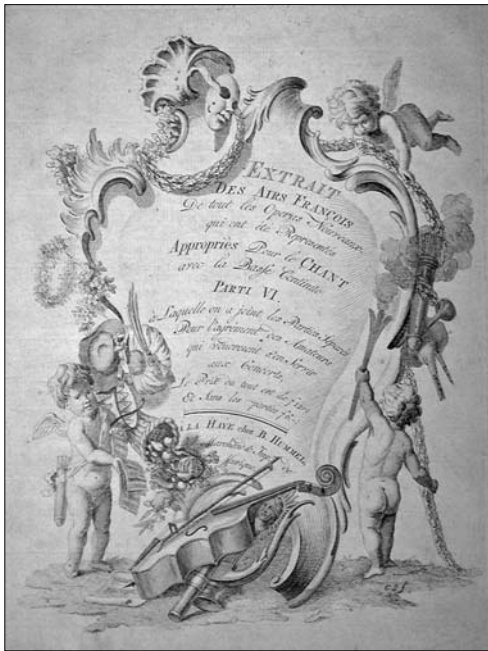 EXTRAIT
DES AIRS FRANÇOIS
De tout les Operas Nouveaux
qui ont été Représentés
Appropriès Pour le CHANT
avec la Basse Continüe
PARTI VI.
à Laquelle on a joint les Parties
Pour l'agrément des Amateurs
qui Voucroient s'en Servir
aux Concerts,
Le Prix du tout est de
Et Sans les parties
À LA HAYE chez B. HUMMEL,
Marchand &
de Musique